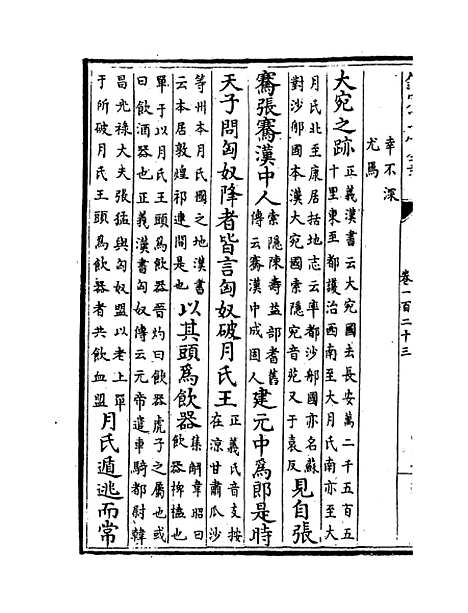 卷一百二十三
幸不深
尤焉
大宛之跡
正義漢書云大宛國去長安萬二千五百五
十里東至都護治西南至大月氏南亦至大
月氏北至康居括地志云率都沙那國亦名蘇
對沙那國本漢大宛國索隱宛音苑又于袁反
見自張
騫張騫漢中人
索隱陳壽益部耆舊
傳云騫漢中成固人
建元中爲郎是時
天子問匈奴降者皆言匈奴破月氏王
正義氏音支按
在涼甘肅瓜沙
等州本月氏國之地漢書
云本居敦煌祁連間是也
以其頭爲飲器
集解韋昭曰
飲器椑榼也
單于以月氏王頭爲飲器晉灼曰飲器虎子之屬也或
曰飲酒器也正義漢書匈奴傳云元帝遣車騎都尉韓
昌光祿大夫張猛與匈奴盟以老上單
于所破月氏王頭爲飲器者共飲血盟
月氏遁逃而常